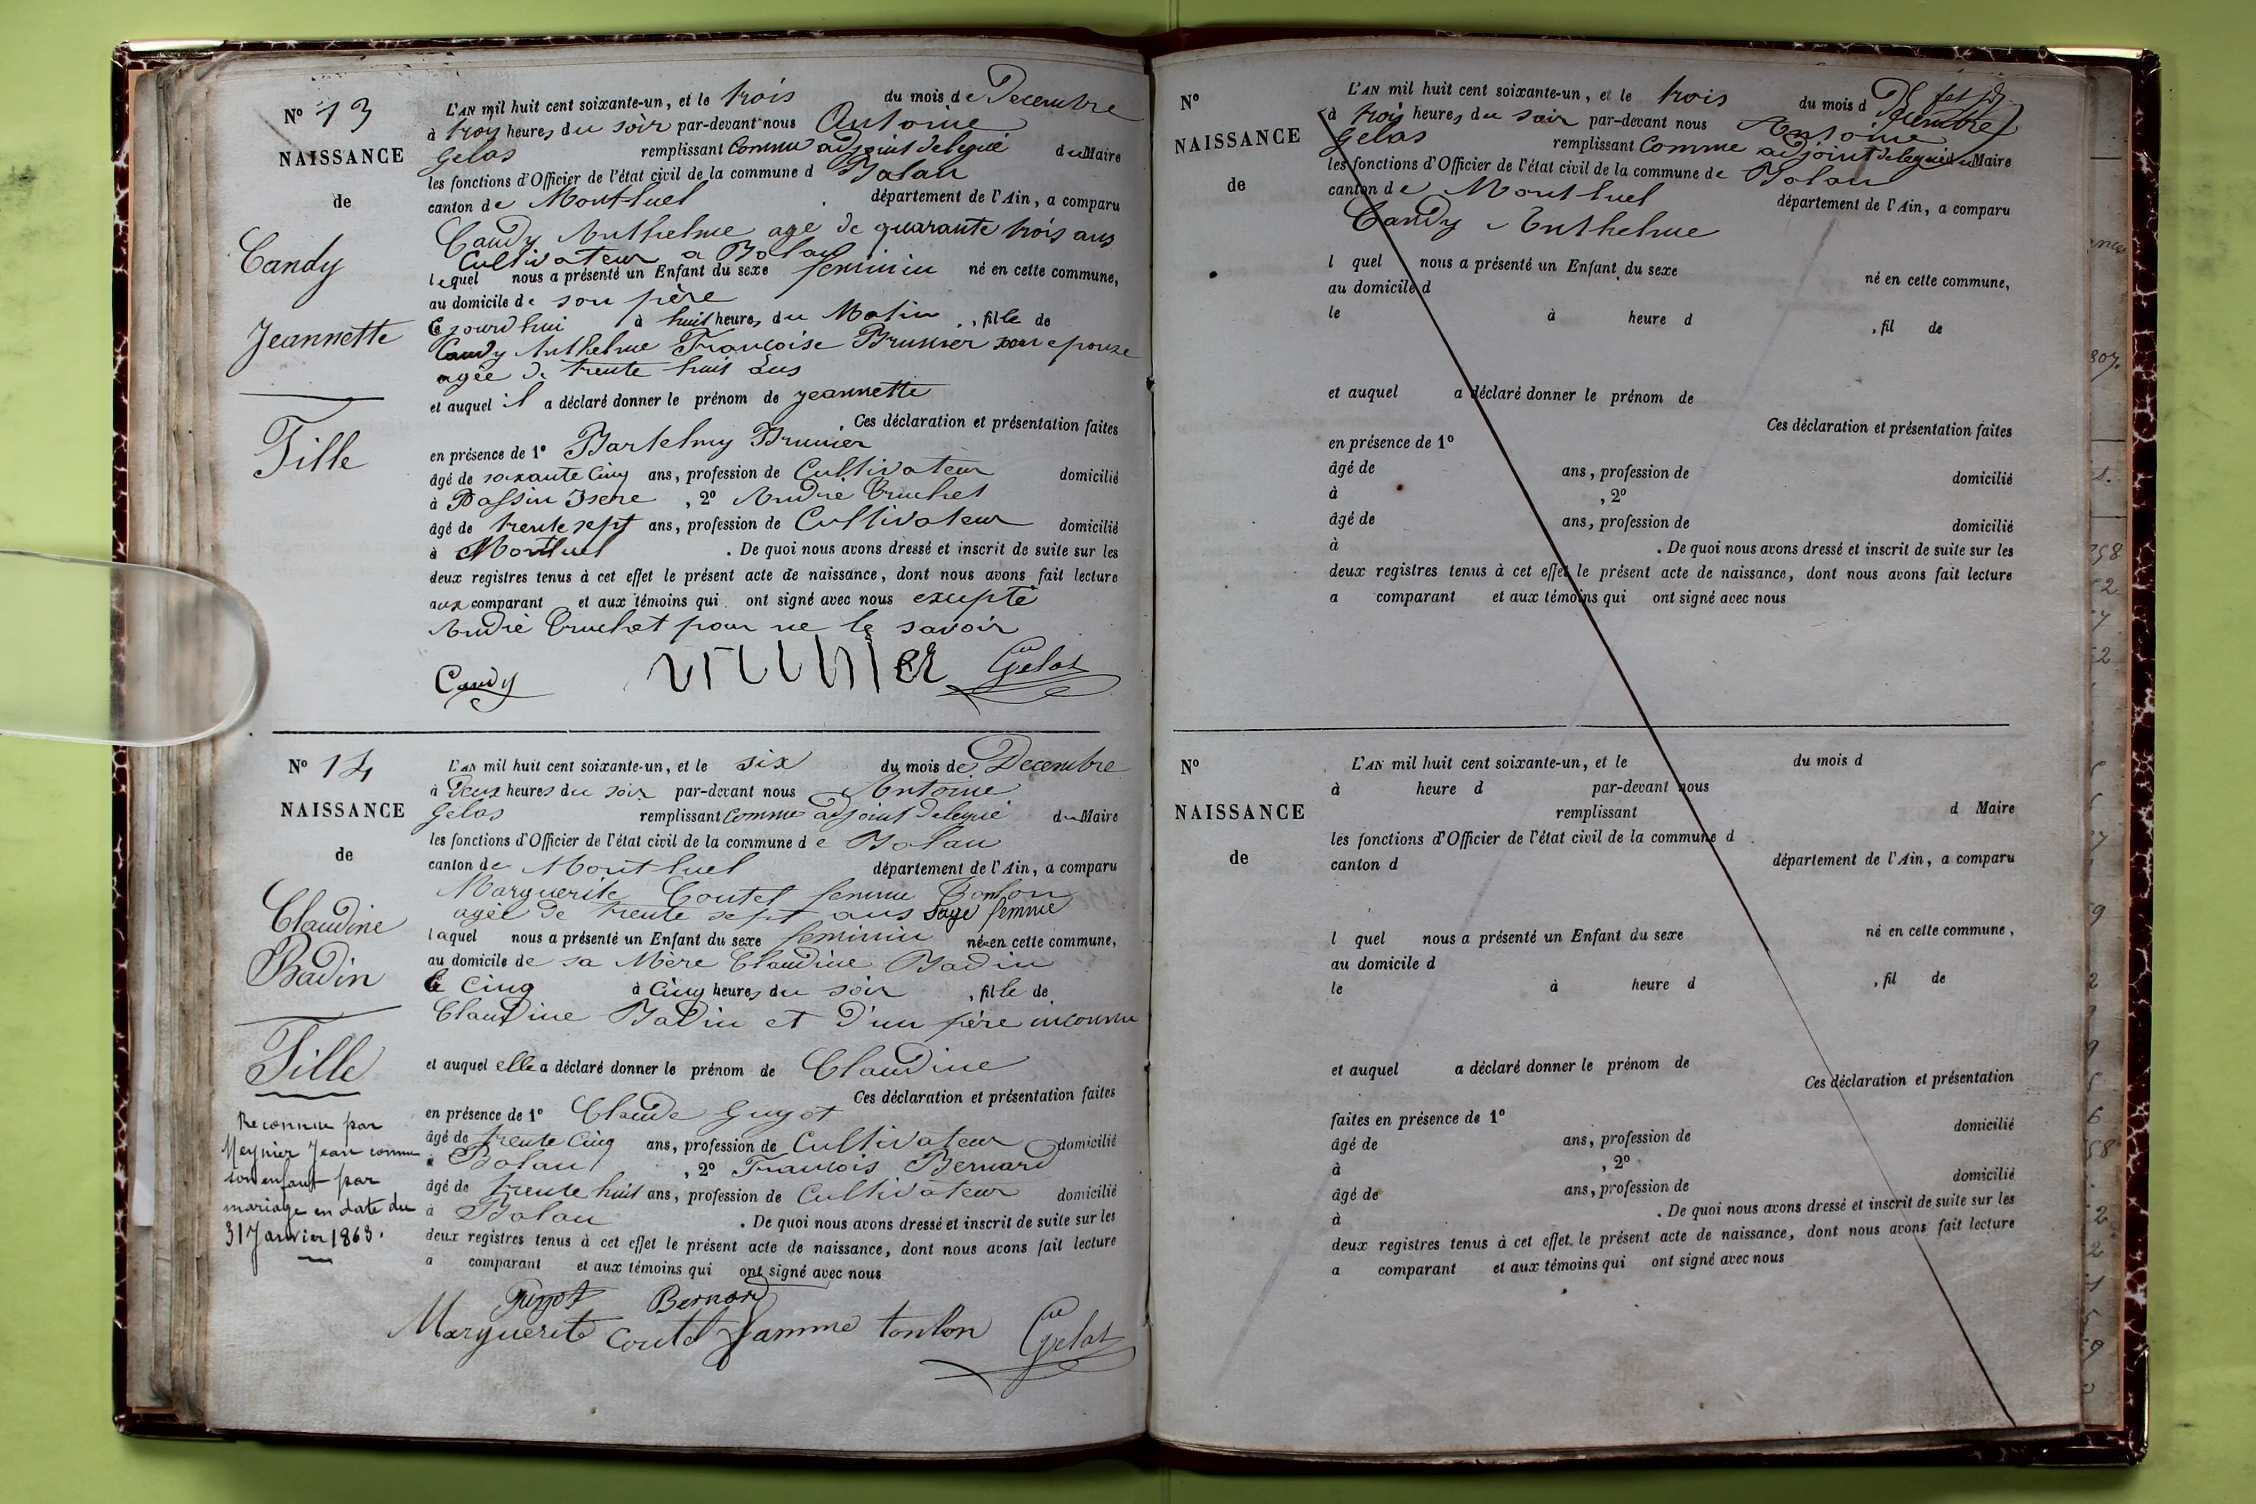 N° 13
NAISSANCE
de
Candy
Jeannette
Fille
L'AN mil huit cent soixante-un, et le trois du mois de Decembre
à trois heures du soir par-devant nous Antoine
Gelas remplissant Comme adjoint delegué du Maire
les fonctions d'Officier de l'état civil de la commune d Balan
canton de Montluel département de l'Ain, a comparu
Candy Anthelme agé de quarante trois ans
Cultivateur a Balan
lequel nous a présenté un Enfant du sexe feminin né en cette commune,
au domicile de son père
Ce jourd'hui à huit heures du Matin, fille de
Candy Anthelme Francoise Brunier son epouse
agée de trente huit ans
et auquel il a déclaré donner le prénom de jeannette
Ces déclaration et présentation faites
en présence de 1° Bartelmy Brunier
âgé de soixante Cinq ans, profession de Cultivateur domicilié
à Passin Isere, 2° André Truchet
âgé de trente sept ans, profession de Cultivateur domicilié
à Montluel. De quoi nous avons dressé et inscrit de suite sur les
deux registres tenus à cet effet le présent acte de naissance, dont nous avons fait lecture
aux comparant et aux témoins qui ont signé avec nous excepté
André Truchet pour ne le savoir
Candy brunier Gelas
N° 14
NAISSANCE
de
Claudine
Badin
Fille
Reconnue par
Meynier Jean comme
son enfant par
mariage en date du
31 Janvier 1863.
L'AN mil huit cent soixante-un, et le six du mois de Decembre
à Deux heures du soir par-devant nous Antoine
Gelas remplissant Comme adjoint delegué du Maire
les fonctions d'Officier de l'état civil de la commune de Balan
canton de Montluel département de l'Ain, a comparu
Marguerite Coutet femme Tonlon
agée de trente sept ans sage femme
laquel nous a présenté un Enfant du sexe feminin née en cette commune,
au domicile de sa Mère Claudine Badin
le Cinq à Cinq heures du soir, fille de
Claudine Badin et d'un père inconnu
et auquel elle a déclaré donner le prénom de Claudine
Ces déclaration et présentation faites
en présence de 1° Claude Guyot
âgé de trente Cinq ans, profession de Cultivateur domicilié
à Balan, 2° Francois Bernard
âgé de trente huit ans, profession de Cultivateur domicilié
à Balan. De quoi nous avons dressé et inscrit de suite sur les
deux registres tenus à cet effet le présent acte de naissance, dont nous avons fait lecture
a comparant et aux témoins qui ont signé avec nous
Guyot Bernard
Marguerite Coutet famme tonlon Gelas
N°
NAISSANCE
de
L'AN mil huit cent soixante-un, et le trois du mois d Decembre
à trois heures du soir par-devant nous Antoine
Gelas remplissant Comme adjoint delegué du Maire
les fonctions d'Officier de l'état civil de la commune de Balan
canton de Montluel département de l'Ain, a comparu
Candy Anthelme
l quel nous a présenté un Enfant du sexe né en cette commune,
au domicile d
le à heure d, fil de
et auquel a déclaré donner le prénom de
Ces déclaration et présentation faites
en présence de 1°
âgé de ans, profession de domicilié
à, 2°
âgé de ans, profession de domicilié
à. De quoi nous avons dressé et inscrit de suite sur les
deux registres tenus à cet effet le présent acte de naissance, dont nous avons fait lecture
a comparant et aux témoins qui ont signé avec nous
N°
NAISSANCE
de
L'AN mil huit cent soixante-un, et le du mois d
à heure d par-devant nous
remplissant d Maire
les fonctions d'Officier de l'état civil de la commune d
canton d département de l'Ain, a comparu
l quel nous a présenté un Enfant du sexe né en cette commune,
au domicile d
le à heure d, fil de
et auquel a déclaré donner le prénom de
Ces déclaration et présentation
faites en présence de 1° domicilié
âgé de ans, profession de
à, 2° domicilié
âgé de ans, profession de
à. De quoi nous avons dressé et inscrit de suite sur les
deux registres tenus à cet effet le présent acte de naissance, dont nous avons fait lecture
a comparant et aux témoins qui ont signé avec nous